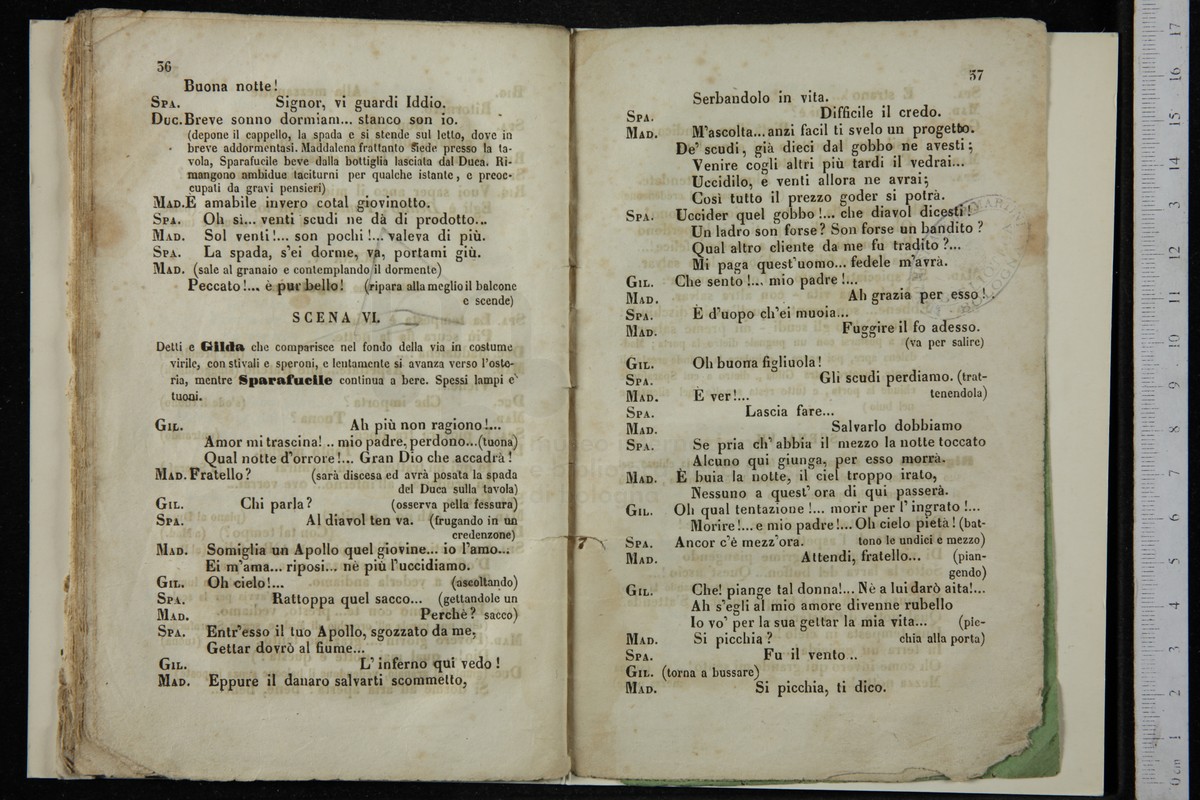 36
Buona notte!
SPA. Signor, vi guardi Iddio.
DUC. Breve sonno dormiam... stanco son io.
(depone il cappello, la spada e si stende sul letto, dove in
breve addormentasi. Maddalena frattanto siede presso la ta-
vola, Sparafucile beve dalla bottiglia lasciata dal Duca. Ri-
mangono ambidue taciturni per qualche istante, e preoc-
cupati da gravi pensieri)
MAD. È amabile invero cotal giovinotto.
SPA. Oh sì... venti scudi ne dà di prodotto...
MAD. Sol venti!... son pochi!... valeva di più.
SPA. La spada, s'ei dorme, va, portami giù.
MAD. (sale al granaio e contemplando il dormente)
Peccato!... è pur bello! (ripara alla meglio il balcone
e scende)
SCENA VI.
Detti e Gilda che comparisce nel fondo della via in costume
virile, con stivali e speroni, e lentamente si avanza verso l'oste-
ria, mentre Sparafucile continua a bere. Spessi lampi e
tuoni.
GIL. Ah più non ragiono!...
Amor mi trascina! .. mio padre, perdono...(tuona)
Qual notte d'orrore!... Gran Dio che accadrà!
MAD. Fratello? (sarà discesa ed avrà posata la spada
del Duca sulla tavola)
GIL. Chi parla? (osserva pella fessura)
SPA. Al diavol ten va. (frugando in un
credenzone)
MAD. Somiglia un Apollo quel giovine... io l'amo...
Ei m'ama... riposi... nè più l'uccidiamo.
GIL. Oh cielo!... (ascoltando)
SPA. Rattoppa quel sacco... (gettandole un
MAD. Perchè? sacco)
SPA. Entr'esso il tuo Apollo, sgozzato da me,
Gettar dovrò al fiume...
GIL. L'inferno qui vedo!
MAD. Eppure il danaro salvarti scommetto,
37
Serbandolo in vita.
SPA. Difficile il credo.
MAD. M'ascolta...anzi facil ti svelo un progetto.
De' scudi, già dieci dal gobbo ne avesti;
Venire cogli altri più tardi il vedrai...
Uccidilo, e venti allora ne avrai;
Così tutto il prezzo goder si potrà.
SPA. Uccider quel gobbo!... che diavol dicesti!
Un ladro son forse? Son forse un bandito?
Qual altro cliente da me fu tradito?...
Mi paga quest'uomo... fedele m'avrà.
GIL. Che sento!... mio padre!...
MAD. Ah grazia per esso!.
SPA. È d'uopo ch'ei muoia...
MAD. Fuggire il fo adesso.
(va per salire)
GIL. Oh buona figliuola!
SPA. Gli scudi perdiamo. (trat-
MAD. È ver!... tenendola)
SPA. Lascia fare...
MAD. Salvarlo dobbiamo
SPA. Se pria ch'abbia il mezzo la notte toccato
Alcuno qui giunga, per esso morrà.
MAD. È buia la notte, il ciel troppo irato,
Nessuno a quest'ora di qui passerà.
GIL. Oh qual tentazione!... morir per l'ingrato!...
Morire!... e mio padre!... Oh cielo pietà! (bat-
SPA. Ancor c'è mezz'ora. tono le undici e mezzo)
MAD. Attendi, fratello... (pian-
gendo)
GIL. Che! piange tal donna!... Nè a lui darò aita!...
Ah s'egli al mio amore divenne rubello
Io vo' per la sua gettar la mia vita... (pic-
MAD. Si picchia? chia alla porta)
SPA. Fu il vento ..
GIL. (torna a bussare)
MAD. Si picchia, ti dico.